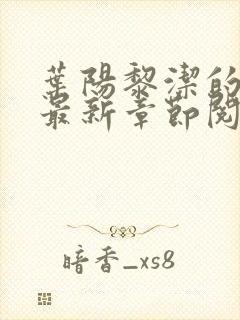 葉陽黎潔的
最新章節閱
暗香_xs8